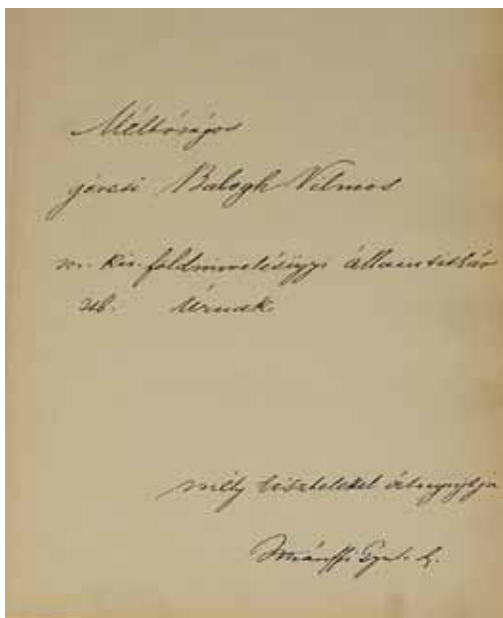 Méltóságos
jóresi Balogh Vilmos
m. kir. földmivelésügyi államtitkár
stb. Úrnak
mély tisztelettel átnyujtja